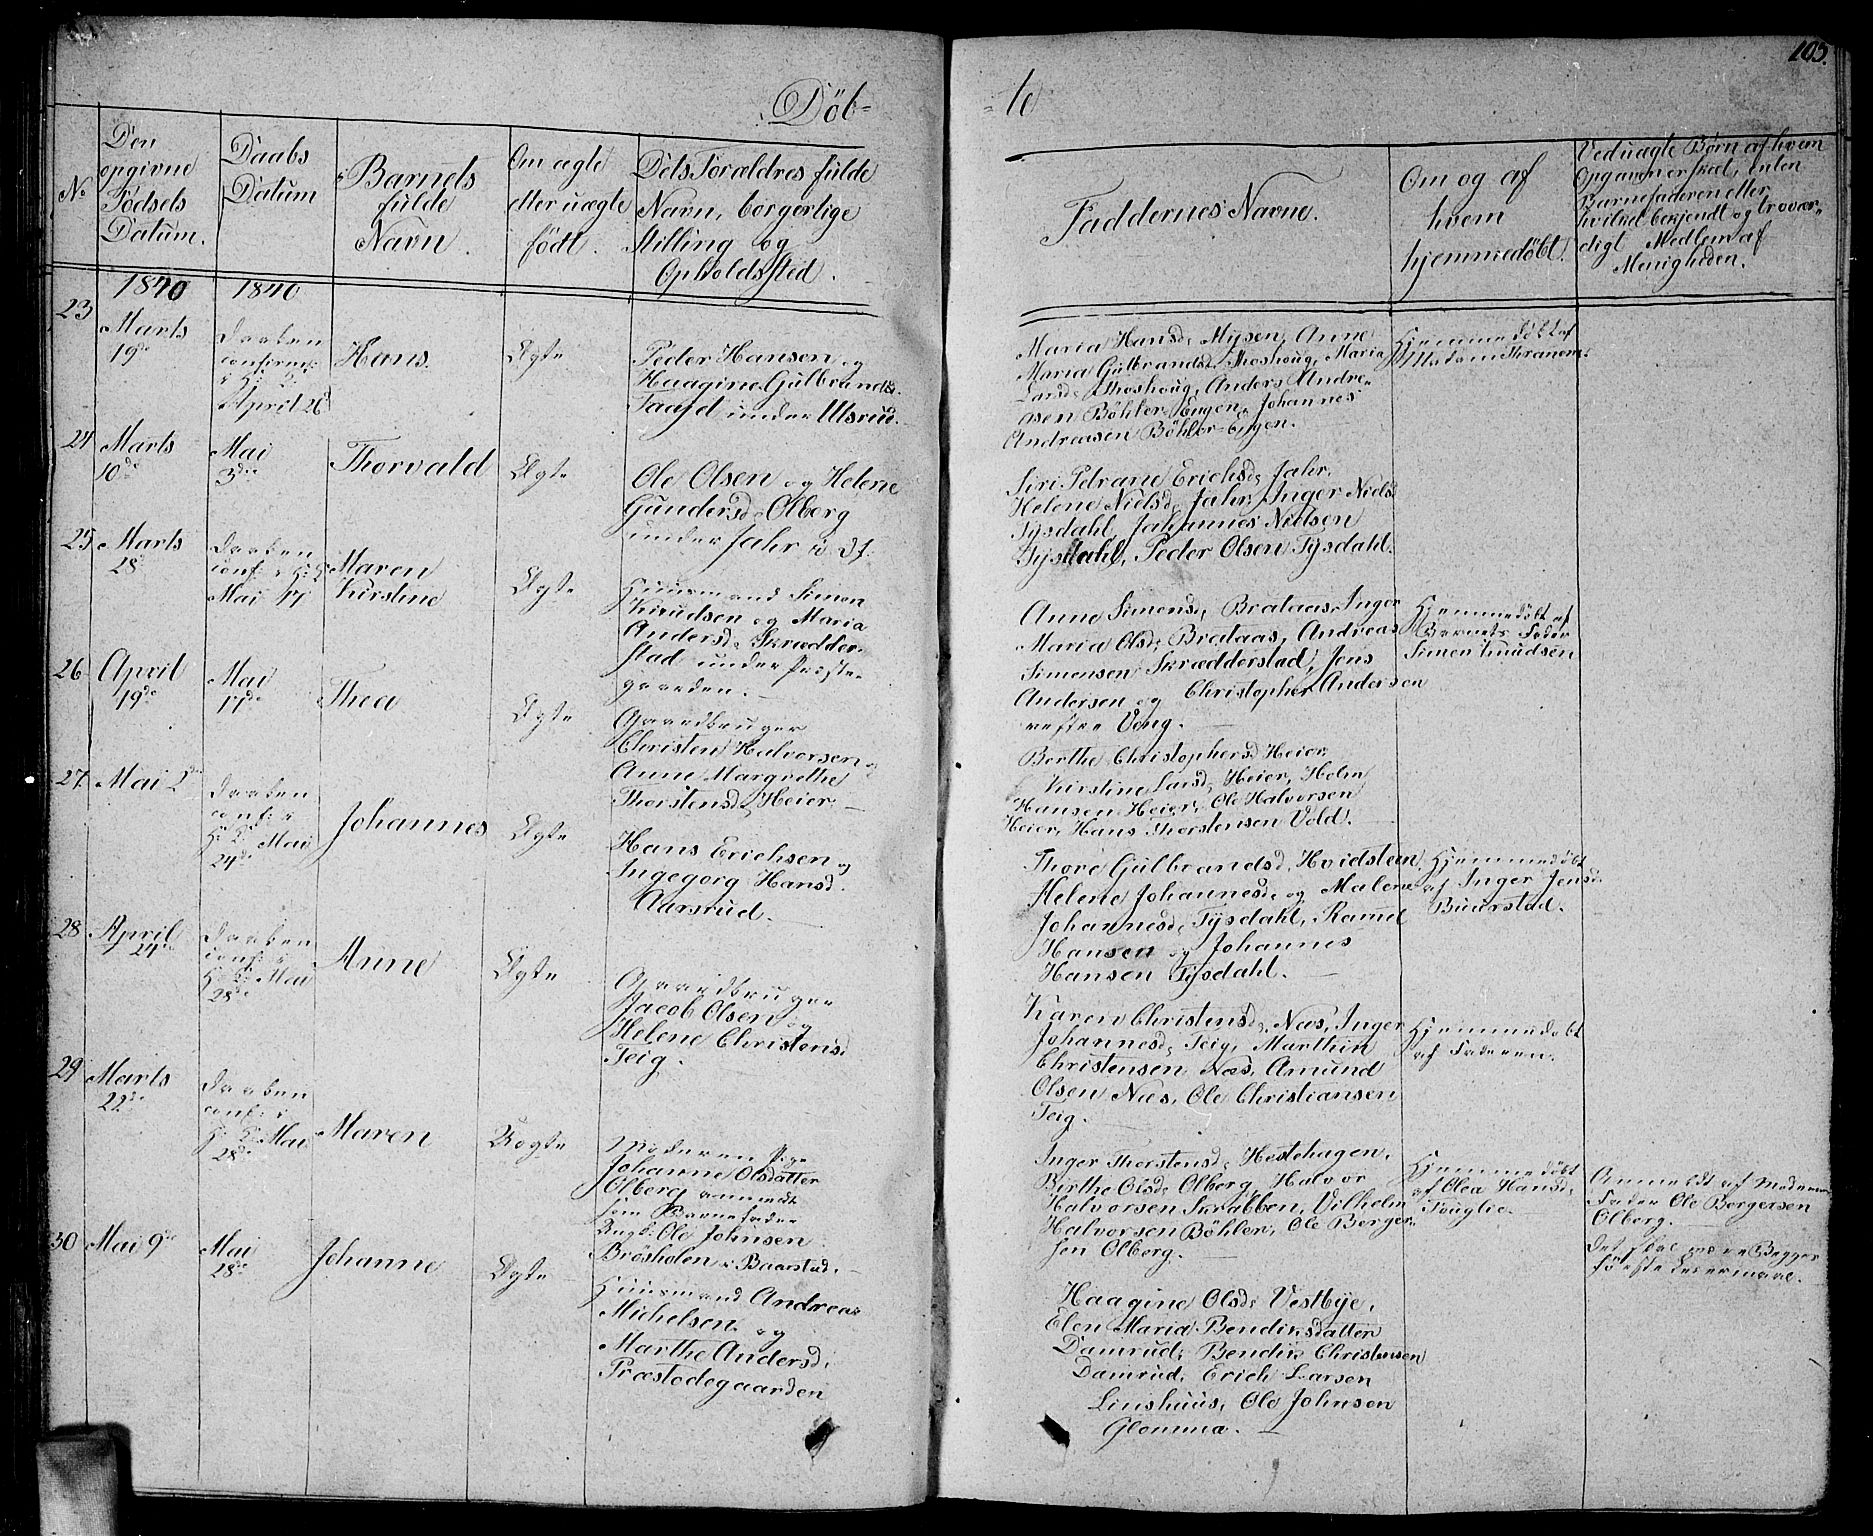 105.
Döb-
-te
No
Den
opgivne
Födsels
Datum.
Daabs
Datum
Barnets
fulde
Navn.
Om ægte
eller uægte
födt.
Dets Forældres fulde
Navn, borgerlige
Stilling og
Opholdssted.
Faddernes Navne.
Om og af
hvem
hjemmedöbt.
Ved uægte Börn af hvem
Opgaven er skeet, enten
Barnefaderen eller
hvilket bekjendt og trovær-
digt Medlem af
Menigheden.
1840
1840
23
Marts
19de
Daaben
confirm:
i H: K:
April 26
Hans.
Ægte
Peder Hansen og
Haagine Gulbrandsd.
Taajet under Ulsrud.
Maria Hansd. Mysen, Anne
Maria Gulbrandsd. Moshoug, Maria
Larsd. Moshoug, Anders Andre-
asen Böhler-Engen, Johannes
Andreasen Böhler-Engen.
Hjemmedöbt af
Madam
24
Marts
10de
Mai
3die
Thorvald
Ægte
Ole Olsen og Helene
Gundersd. Olberg
under Jahr
Siri Petrane Erichsd. Jahr,
Helene Nielsd. Jahr, Inger Nielsd.
Tysdahl, Johannes Nielsen
Tysdahl, Peder Olsen Tysdahl.
25
Marts
28
Daaben
conf: i H: K:
Mai 17
Maren
Kirstine
Ægte
Huusmand Simen
Knudsen og Maria
Andersd. Skrædder-
stad under Præste-
gaarden.
Anne Simensd. Brataas, Inger
Maria Olsd. Brataas, Andreas
Simensen Skrædderstad, Jens
Andersen og Christopher Andersen
Veng.
Hjemmedöbt af
Barnets Fader
Simen Knudsen
26
April
19de
Mai
17de
Thea
Ægte
Gaardbruger
Christen Halvorsen og
Anne Margrethe
Thorstensd. Heier.
Berthe Christophersd. Heier,
Kirstine Larsd. Heier, Holm
Hansen Heier, Ole Halvorsen
Heier, Hans Thorstensen Vold.
27.
Mai 2den
Daaben
conf: i
H: K: Mai
24de
Johannes
Ægte
Hans Erichsen og
Ingegorg Hansd.
Aarsrud.
Thore Gulbrandsd. Hvidsteen,
Helene Johannesd. og Malene
Johannesd. Tysdahl, Ramel
Hansen og Johannes
Hansen Tysdahl.
Hjemmedöbt
af Inger Jensd.
Buurstad.
28
April
24de
Daaben
conf: i
H: K: Mai
28de
Anne
Ægte
Gaardbruger
Jacob Olsen og
Helene Christensd.
Teig.
Karen Christensd. Næs, Inger
Johannesd. Teig, Marthin
Christensen Næs, Amund
Olsen Næs, Ole Christiansen
Teig.
Hjemmedöbt
af Faderen.
29
Marts
22de
Daaben
conf: i
H: K: Mai
28de
Maren
Uægte
Moderen Pige
Johanne Olsdatter
Olberg anmeldt
som Barnefader
Ungk: Ole Johnsen
Bröshölen i Baarstad.
Inger Thorstensd. Hestehagen,
Birthe Olsd. Olberg, Halvor
Halvorsen Skrabben, Vilhelm
Halvorsen Böhler, Ole Berger-
sen Olberg.
Hjemmedöbt
af Olea Hansd.
Anmeldt af Moderens
Fader Ole Bergersen
Olberg.
Det skal være Begges
förste Leiermaal.
30
Mai 9de
Mai
28de
Johanne
Ægte
Huusmand Andreas
Michelsen og
Marthe Andersd.
Præstedegaarden
Haagine Olsd. Vestbye,
Elen Maria Bendiksdatter
Damrud, Bendik Christensen
Damrud, Erich Larsen
Linshuus, Ole Johnsen
Glomma.